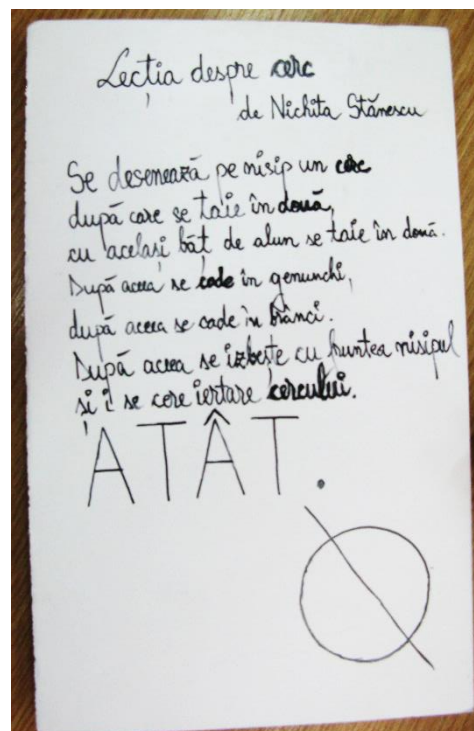 Lecția despre cerc
de Nichita Stănescu
Se desenează pe nisip un cerc
după care se taie în două,
cu același băț de alun se taie în două.
După aceea se cade în genunchi,
după aceea se cade în brânci.
După aceea se izbește cu fruntea nisipul
și i se cere iertare cercului.
ATÂT.